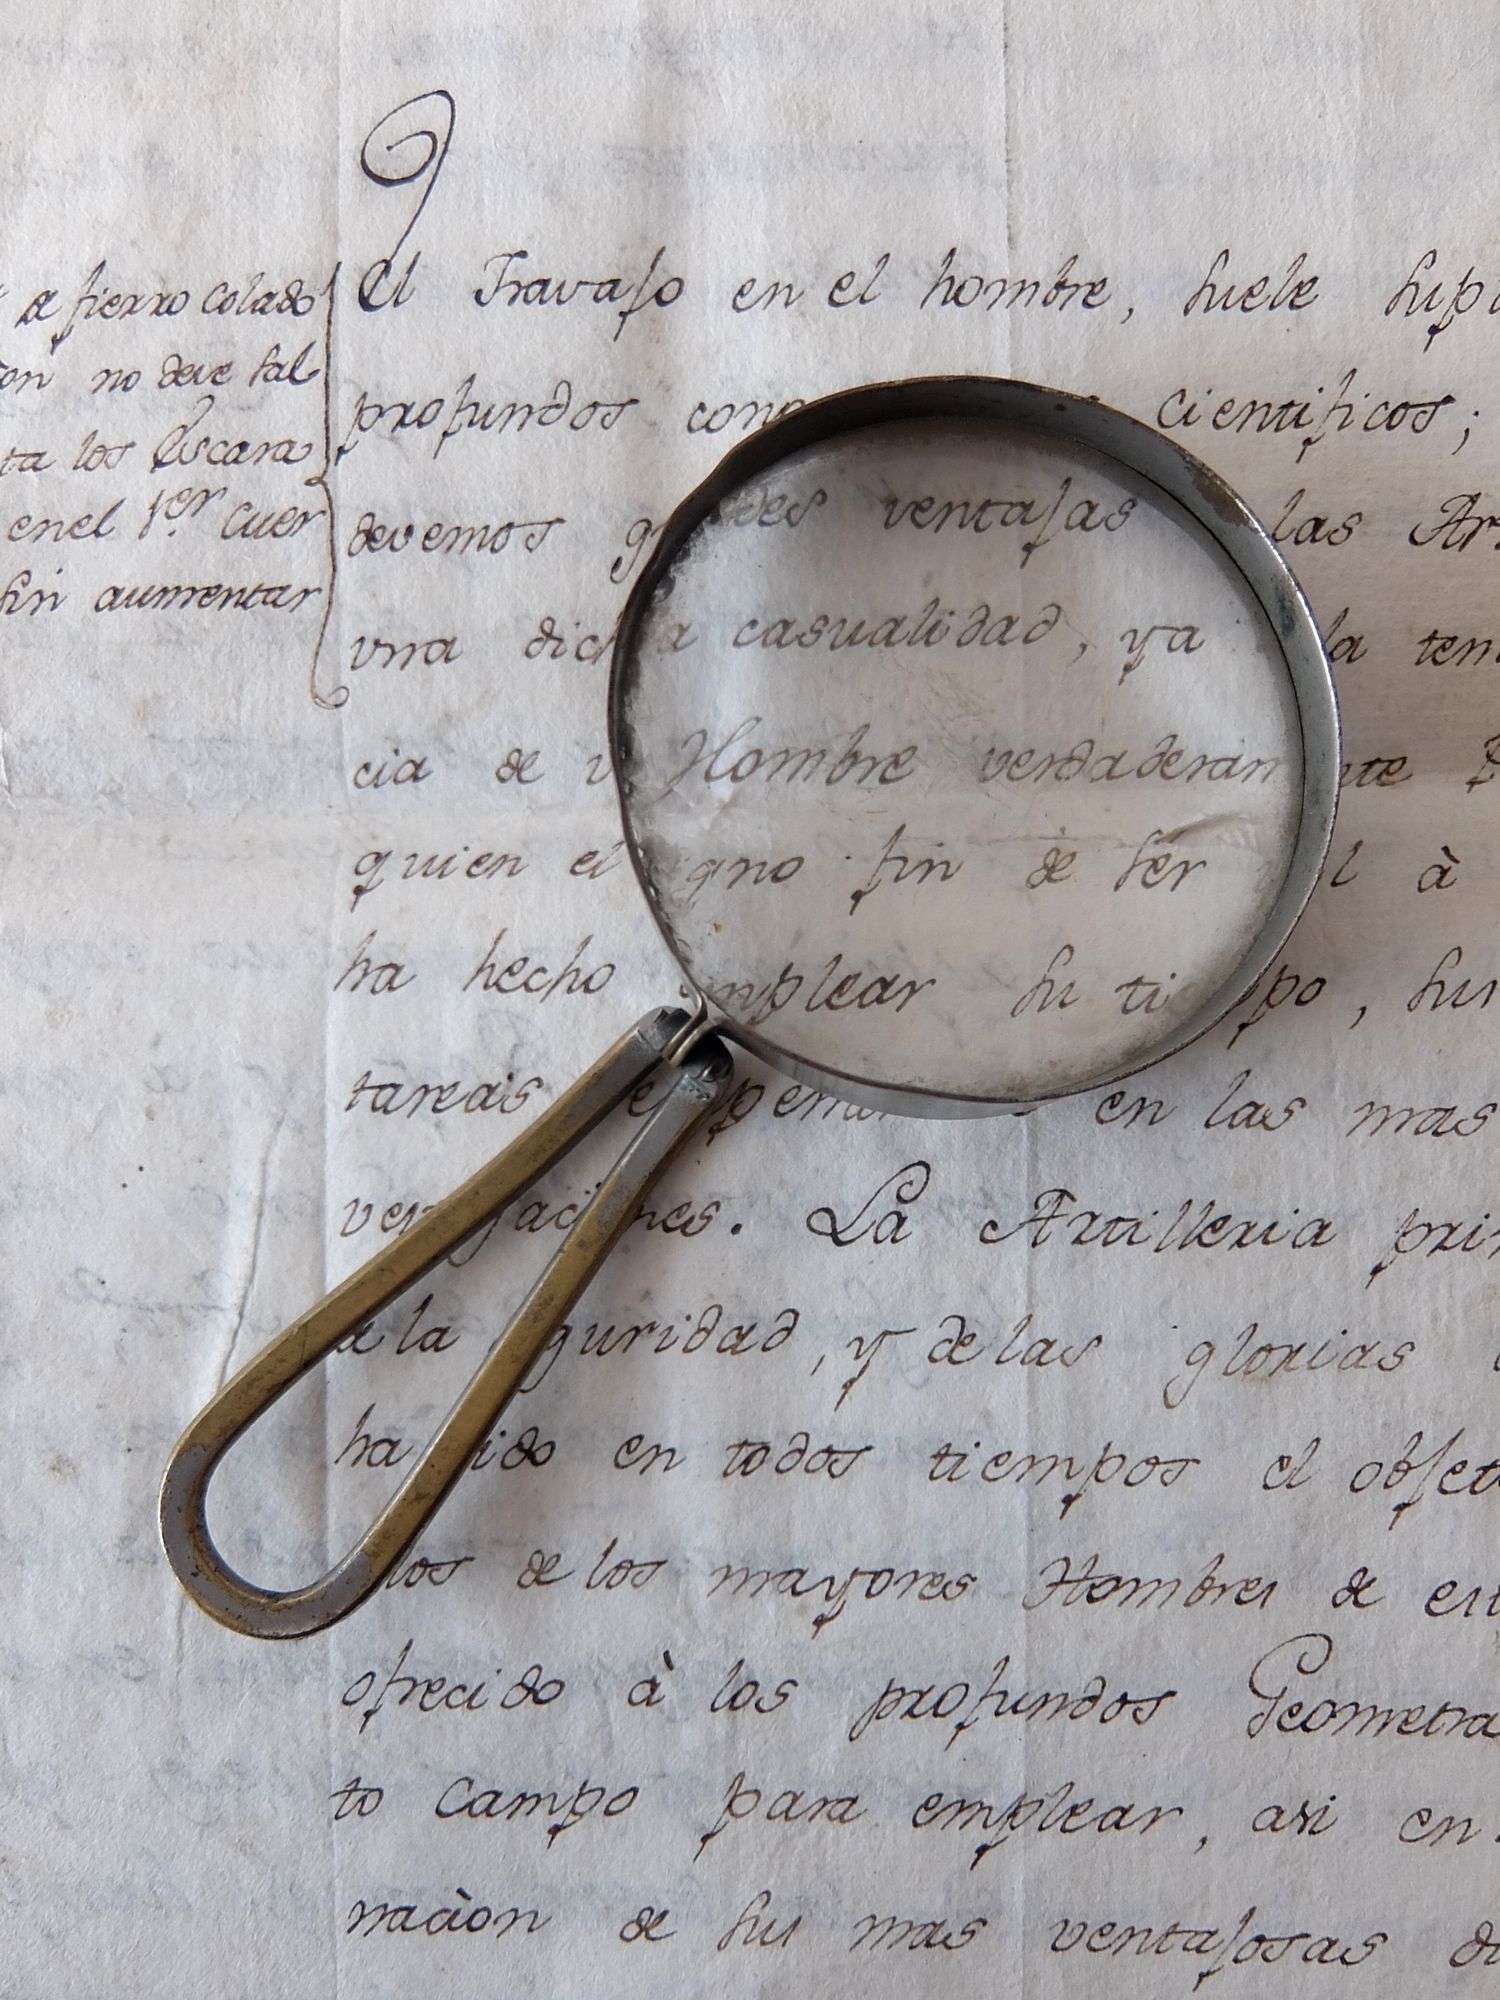 a fierro colado
on no deve sal
ta los Escara
en el 1.er Cuer
sin aumentar
El Travajo en el hombre, suele supl
profundos cono cientificos;
devemos gr des ventajas las Ar
una dich a casualidad, ya la ten
cia de u Hombre verdaderam nte
quien el igno fin de ser l à
ha hecho emplear su ti po, sus
tareas en las mas
ver gaciones. La Artilleria prin
a la guridad, y de las glorias
ha ido en todos tiempos el objeto
los de los mayores Hombres de est
ofrecido à los profundos Geometra
to Campo para emplear, asi en
naciòn de sus mas ventajosas di